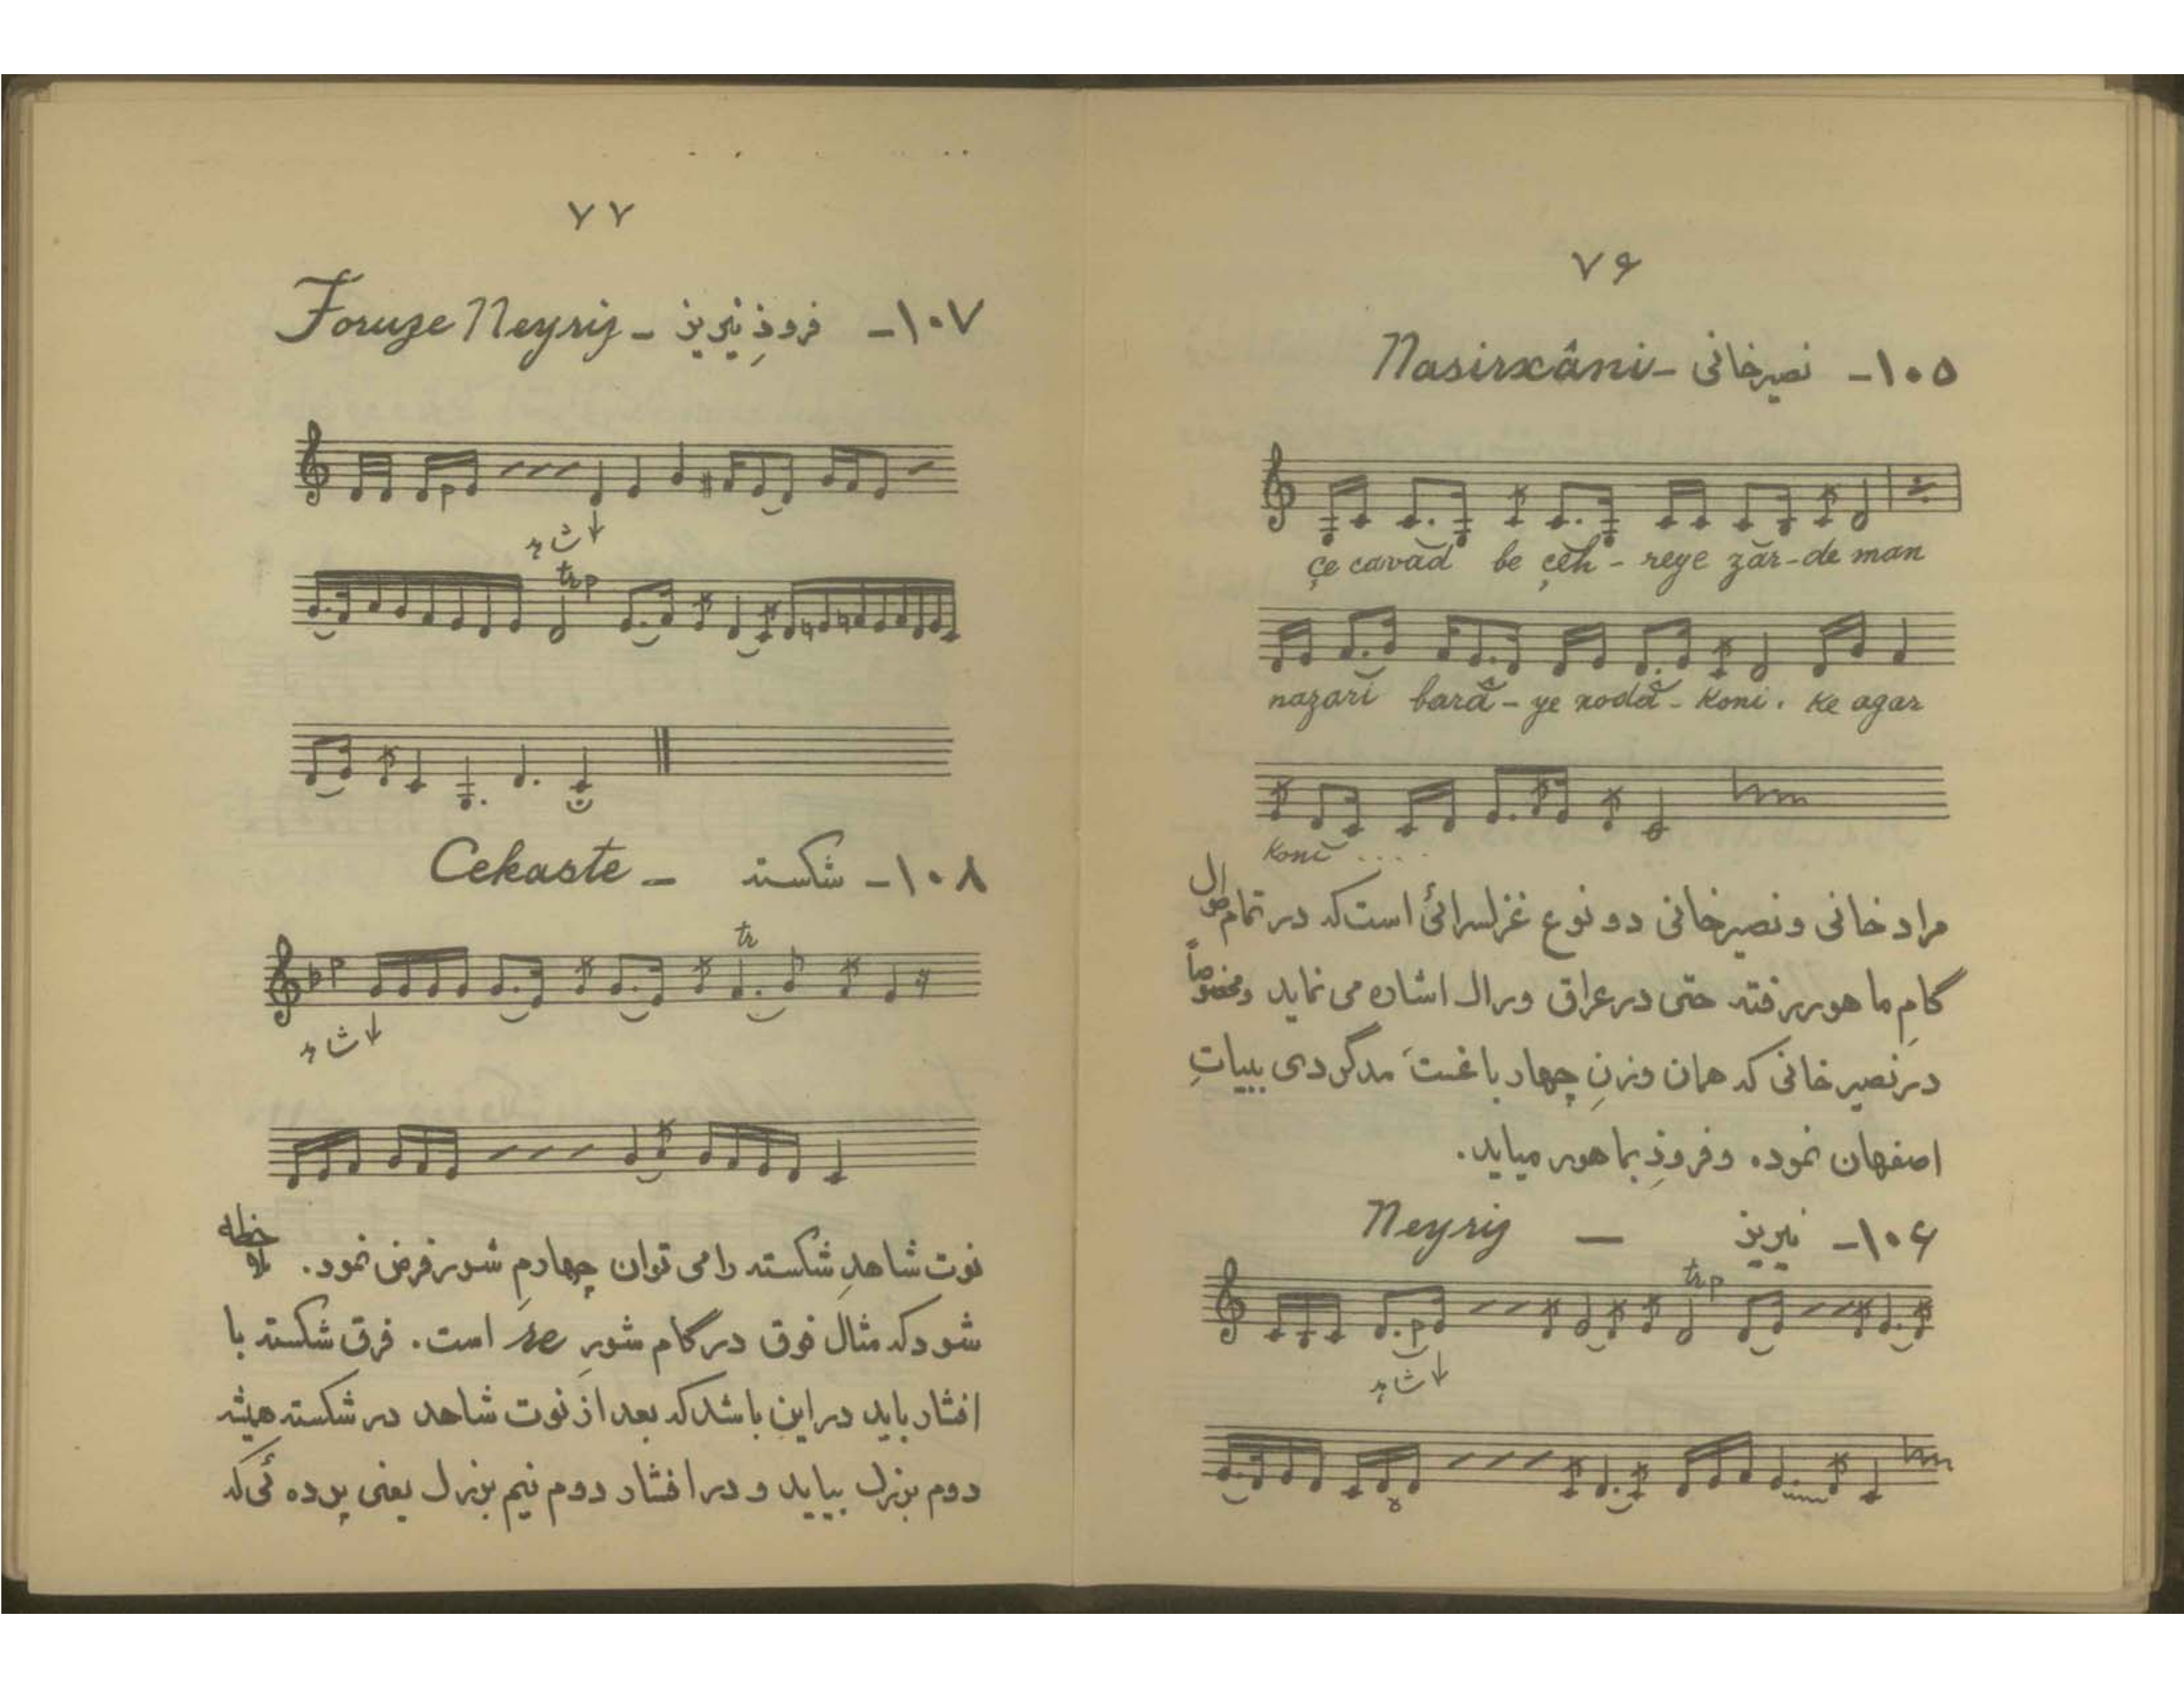 ۷۶
۱۰۵- نصیرخانی - Nasirxâni
çe cavad be çeh - reye zar-de man
nazari barâ - ye xodâ - koni . ke agar
koni ....
مراد خانی و نصیرخانی دو نوع غزلسرائی است که در تمام طول
گامِ ماهور رفته حتی در عراق و راک اشاره می نماید و مخصوصاً
در نصیرخانی که همان وزنِ چهارباغست مدگردی ببیاتِ
اصفهان نموده و فرودِ بماهور میاید.
۱۰۶- نیریز — Neyriz
trp
شاهد
۷۷
۱۰۷- فروذِ نیریز - Foruze Neyriz
شاهد
trp
۱۰۸- شکسته - Cekaste
tr
شاهد
نوت شاهدِ شکسته را می توان چهارمِ شور فرض نمود.
شود که مثال فوق در گام شورِ re است. فرق شکسته با
افشار باید در این باشد که بعد از نوت شاهد در شکسته همیشه
دوم بزرگ بیاید و در افشار دوم نیم بزرگ یعنی پرده ئی که